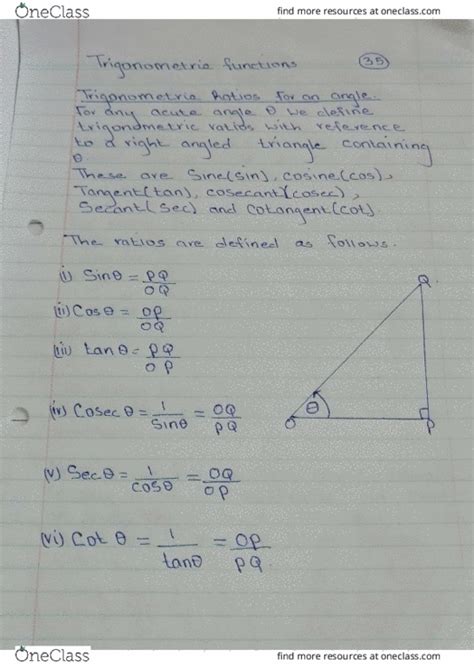 OneClass
find more resources at oneclass.com
Trigonometric functions
35
Trigonometric Ratios for an angle.
For any acute angle θ we define
trigonometric ratios with reference
to a right angled triangle containing
θ
These are Sine(sin), cosine(cos),
Tangent(tan), cosecant(cosec),
Secant(sec) and cotangent(cot).
The ratios are defined as follows.
(i) Sinθ = PQ/OQ
(ii) Cosθ = OP/OQ
(iii) tanθ = PQ/OP
(iv) Cosec θ = 1/Sinθ = OQ/PQ
(v) Secθ = 1/cosθ = OQ/OP
(vi) Cot θ = 1/tanθ = OP/PQ
Q
θ
O
P
OneClass
find more resources at oneclass.com